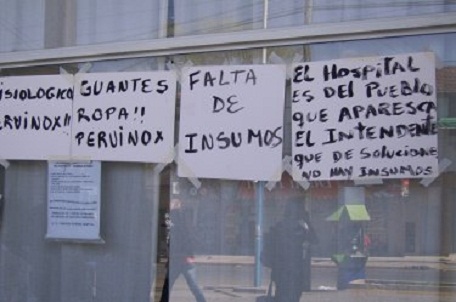 ISIOLOGICO
ERVINOX!!
GUANTES
ROPA!!
PERVINOX
FALTA
DE
INSUMOS
EL HOSPITAL
ES DEL PUEBLO
QUE APARESCA
EL INTENDENTE
QUE DE SOLUCIONE
NO HAY INSUMOS